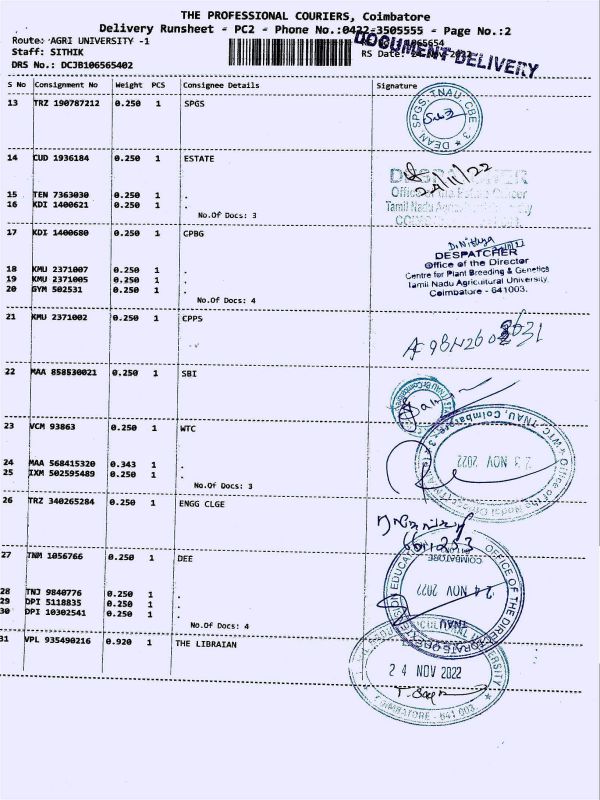 THE PROFESSIONAL COURIERS, Coimbatore
Delivery Runsheet - PC2 - Phone No.:0422-3505555 - Page No.:2
Route: AGRI UNIVERSITY -1
Staff: SITHIK
DRS No.: DCJB106565402
RS Date:
DOCUMENT DELIVERY
S No Consignment No Weight PCS Consignee Details Signature
13 TRZ 190787212 0.250 1 SPGS
DEAN, SPGS, TNAU, CBE-3
14 CUD 1936184 0.250 1 ESTATE
24/11/22
15 TEN 7363030 0.250 1 .
16 KDI 1400621 0.250 1 .
No.Of Docs: 3
17 KDI 1400680 0.250 1 CPBG
DESPATCHER
Office of the Director
Centre for Plant Breeding & Genetics
Tamil Nadu Agricultural University,
Coimbatore - 641003.
18 KMU 2371007 0.250 1 .
19 KMU 2371005 0.250 1 .
20 GYM 502531 0.250 1 .
No.Of Docs: 4
21 KMU 2371002 0.250 1 CPPS
22 MAA 858530021 0.250 1 SBI
23 VCM 93863 0.250 1 WTC
WTC, TNAU, Coimbatore-3
Office of the Nodal Officer
23 NOV 2022
24 MAA 568415320 0.343 1 .
25 IXM 502595489 0.250 1 .
No.Of Docs: 3
26 TRZ 340265284 0.250 1 ENGG CLGE
27 TNM 1056766 0.250 1 DEE
OFFICE OF THE DIRECTOR
24 NOV 2022
TNAU
COIMBATORE
28 TNJ 9840776 0.250 1 .
29 DPI 5118835 0.250 1 .
30 DPI 10302541 0.250 1 .
No.Of Docs: 4
31 VPL 935490216 0.920 1 THE LIBRAIAN
24 NOV 2022
COIMBATORE - 641 003